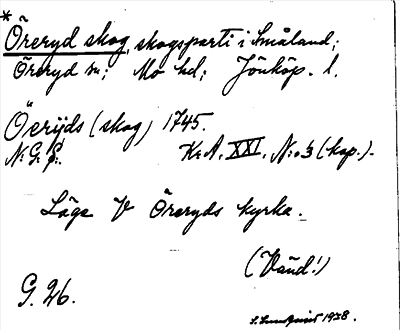 *
Öreryd skog, skogsparti i Småland;
Öreryd sn; Mo hd; Jönköp. l.
Öerÿds (skog) 1745.
N: G. S:. Kr. A. XXI. N:o 3 (kop.).
Läge V Öreryds kyrka.
(Vänd!)
G. 26.
1938.